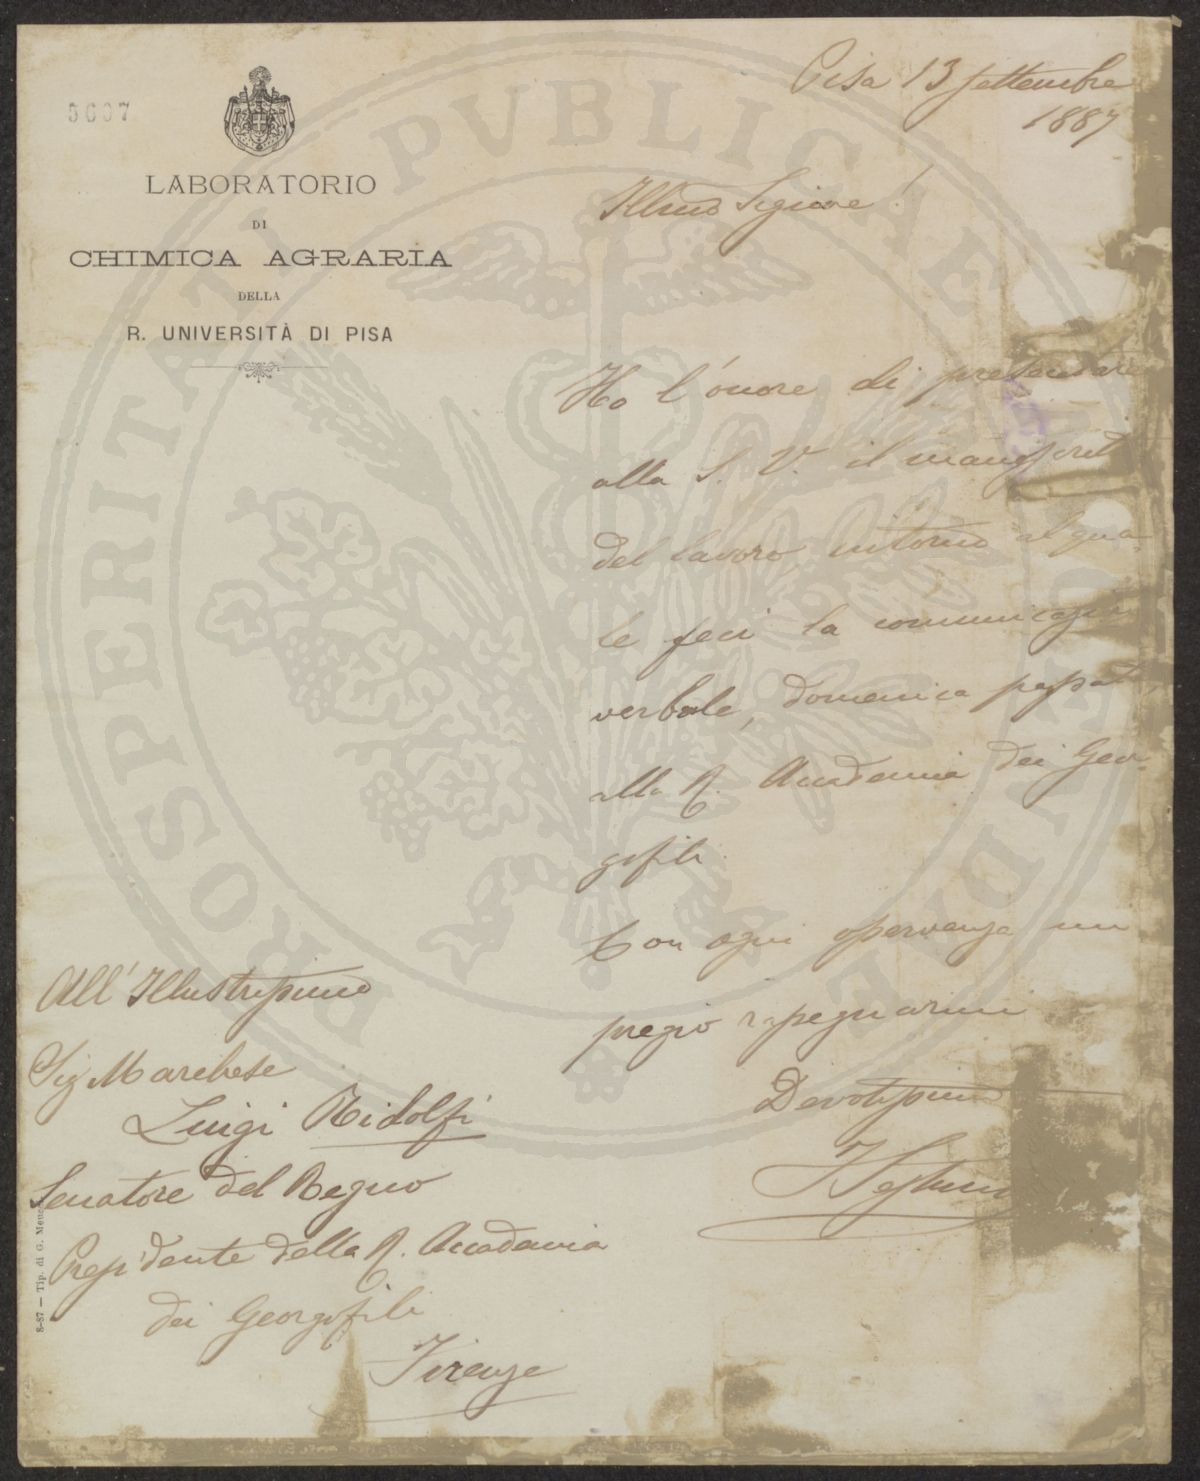 5607
LABORATORIO
DI
CHIMICA AGRARIA
DELLA
R. UNIVERSITÀ DI PISA
Pisa 13 Settembre
1887
Illmo Signore!
Ho l'onore di presentare
alla S. V. il manoscrit
del lavoro intorno al qua-
le feci la comunicazio
verbale, domenica passat
alla R. Accademia dei Geor-
gofili.
Con ogni osservanza mi
pregio rassegnarmi
Devotissimo
All'Illustrissimo
Sig Marchese
Luigi Ridolfi
Senatore del Regno
Presidente della R. Accademia
dei Georgofili
Firenze
8-87 — Tip. di G. Meuc
PROSPERITATI PVBLICAE AVGENDAE